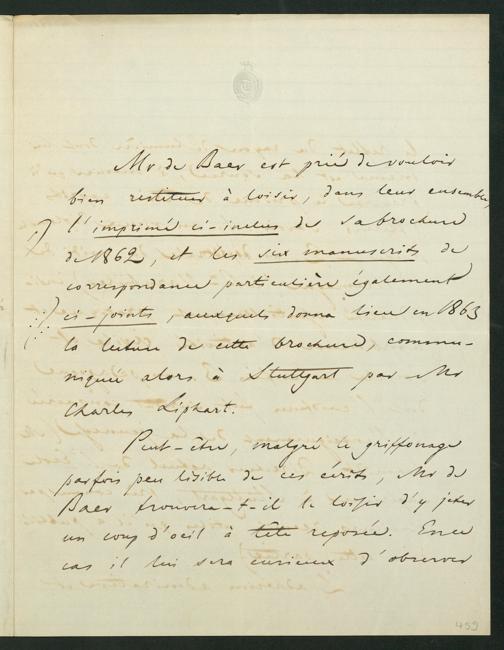 Mr de Baer est prié de vouloir
bien restituer à loisir, dans leur ensemble,
l'imprimé ci-inclus de sa brochure
de 1862, et les six manuscrits de
correspondance particulière également
ci-joints, auxquels donna lieu en 1863
la lecture de cette brochure, commu-
niquée alors à Stuttgart par Mr
Charles Liphart.
Peut-être, malgré le griffonage
parfois peu lisible de ces écrits, Mr de
Baer trouvera-t-il le loisir d'y jeter
un coup d'oeil à tête reposée. En ce
cas il lui sera curieux d'observer
459